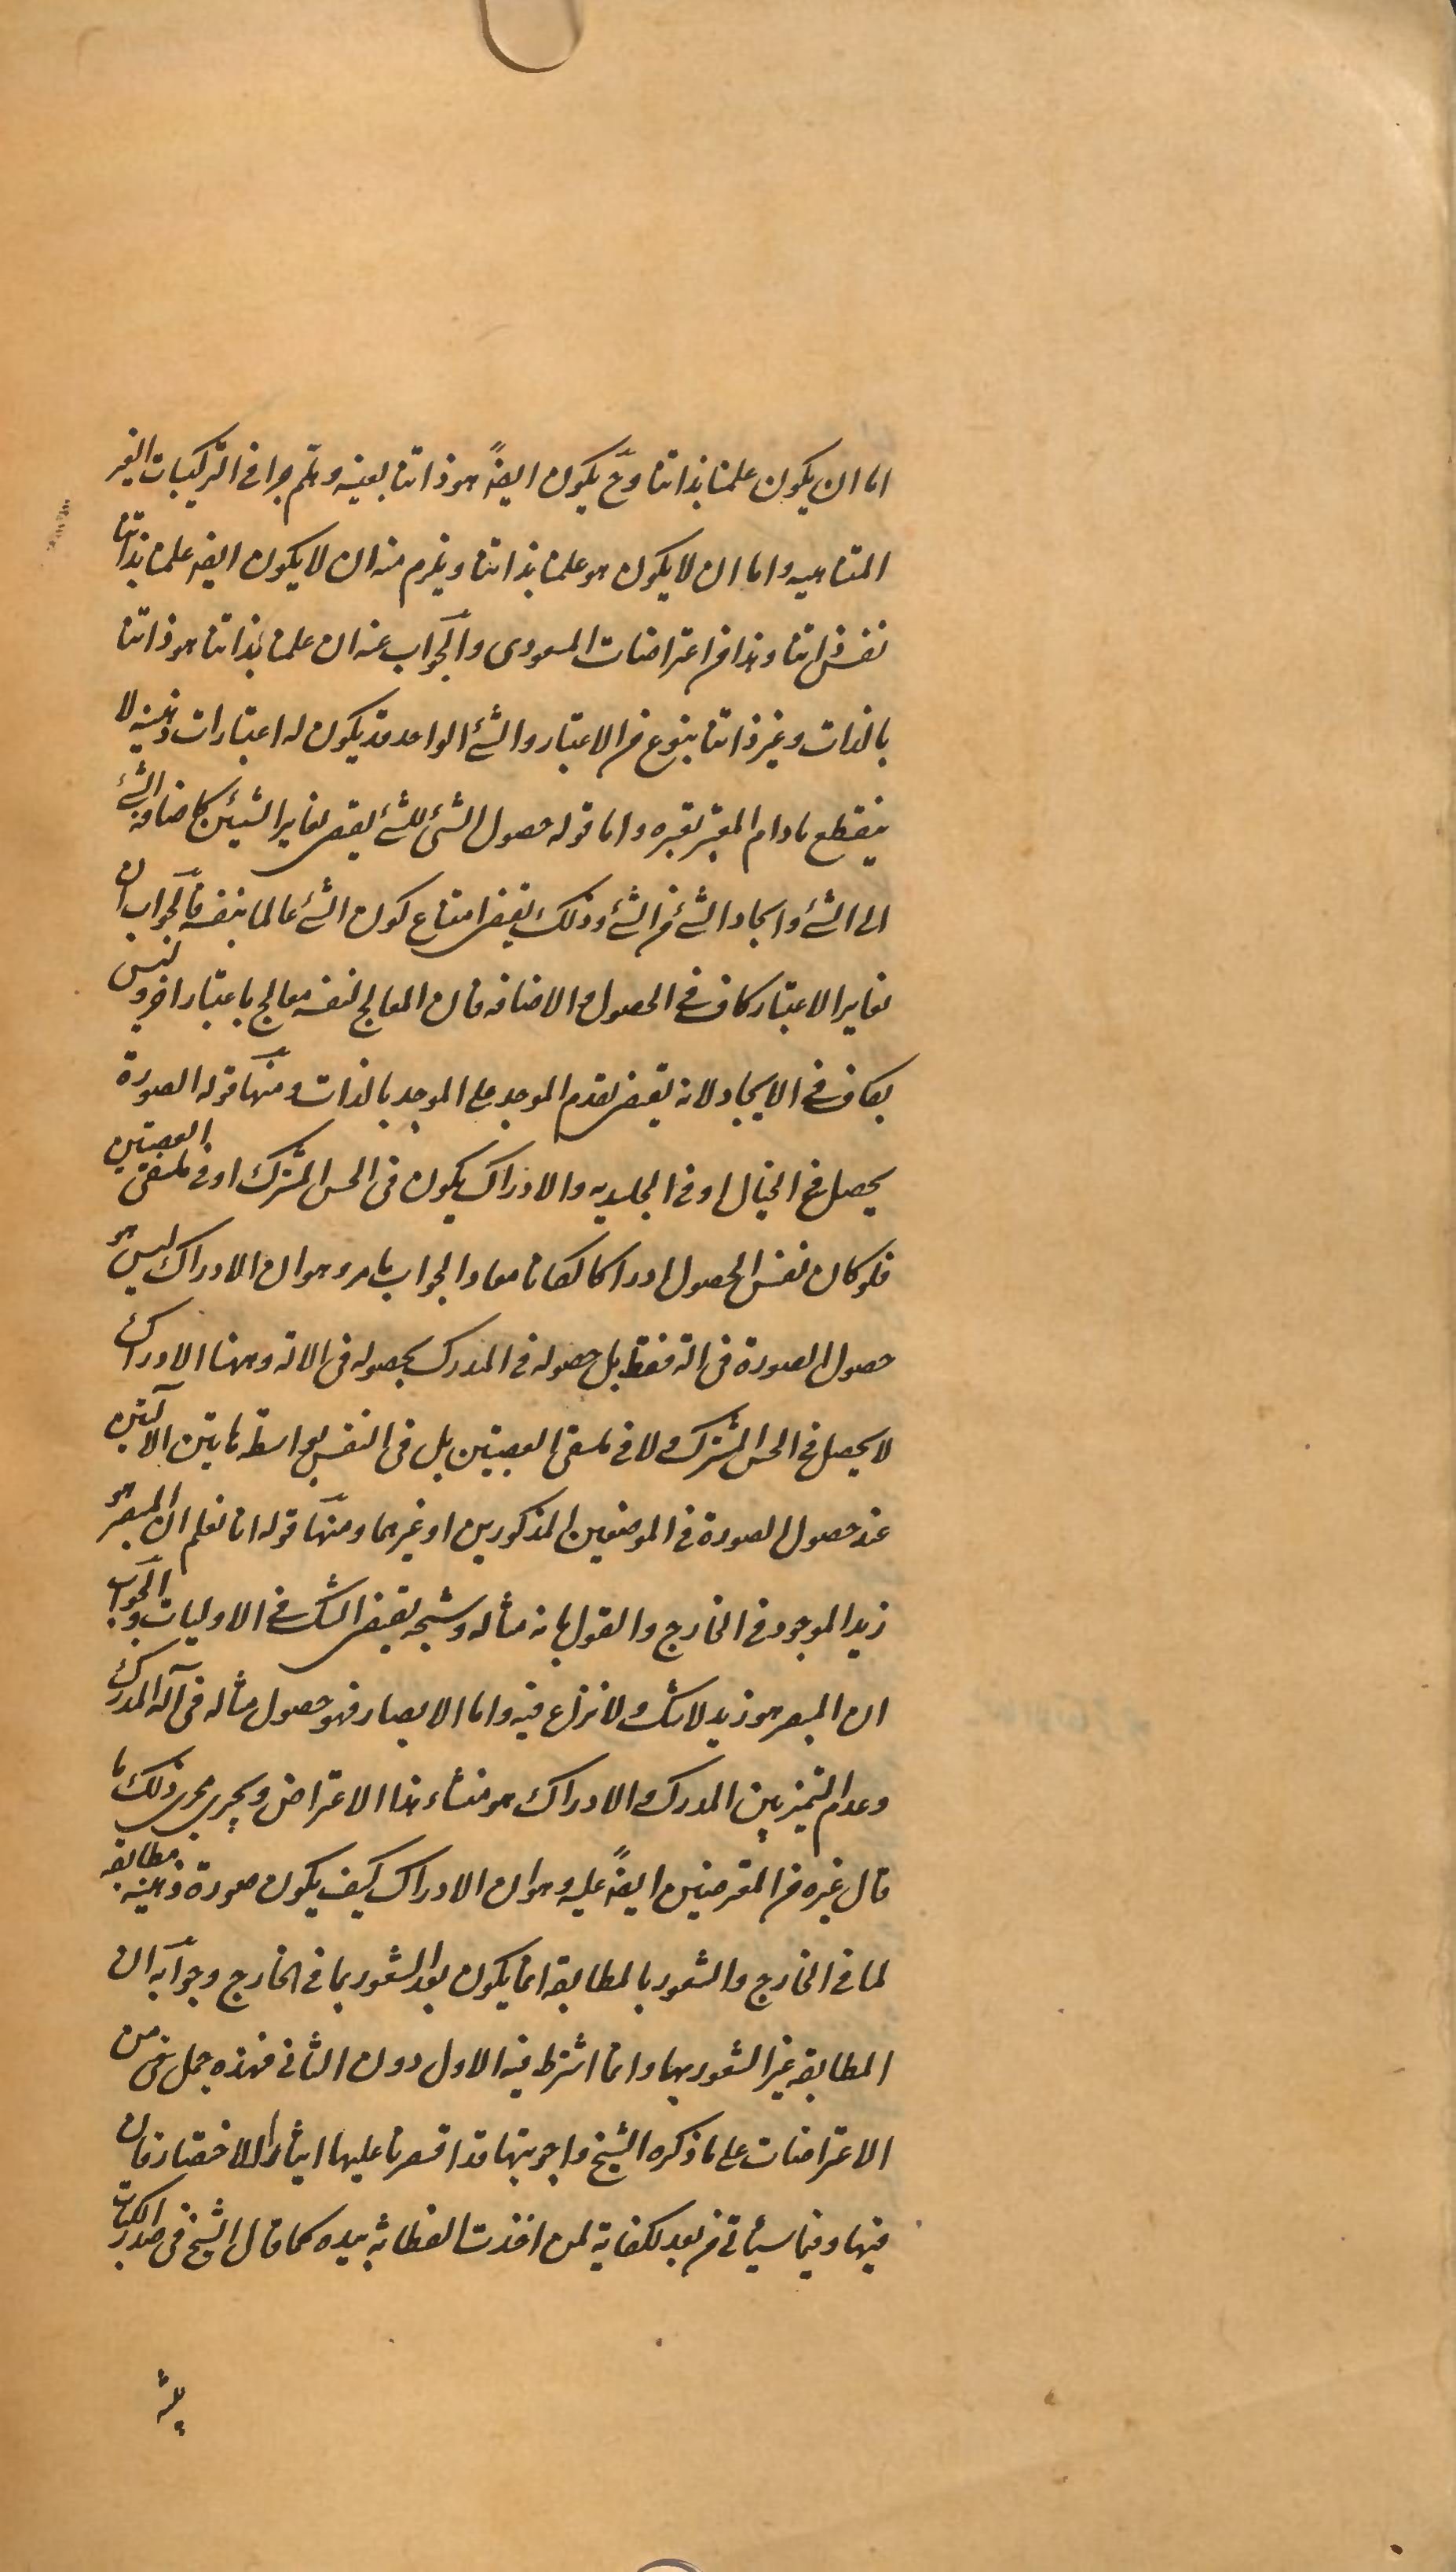 اما ان يكون علمنا بذاتنا وح يكون ايضً هو ذاتنا بعينه وهلم جرا فى التركيبات الغير
المتناهيه واما ان لا يكون هو علمنا بذاتنا ويلزم منه ان لا يكون ايضه علمنا بذاتنا
نفس ذاتنا وهذا من اعتراضات المسعودى والجواب عنه ان علمنا بذاتنا هو ذاتنا
بالذات وغير ذاتنا بنوع من الاعتبار والشئ الواحد قد يكون له اعتبارات ذهنيه لا
ينقطع مادام المعتبر يعتبره واما قوله حصول الشئ للشئ يقتضى تغاير الشيئين كاضافه الشئ
الى الشئ وايجاد الشئ من الشئ وذلك يقتضى امتناع كون الشئ عالما بنفسه فالجواب ان
تغاير الاعتبار كاف فى الحصول والاضافه فان المعالج لنفسه معالج باعتبار اخر وليس
بكاف فى الايجاد لانه يقتضى تقدم الموجد على الموجد بالذات ومنها قوله الصورة
يحصل فى الخيال او فى الجليديه والادراك يكون فى الحس المشترك او فى ملتقى العصبتين
فلو كان نفس الحصول ادراكا لكانا معا والجواب بامر وهو ان الادراك ليس هو
حصول الصورة فى الة فقط بل حصوله فى المدرك بحصوله فى الالة وههنا الادراك
لا يحصل فى الحس المشترك ولا فى ملتقى العصبتين بل فى النفس بواسطه هاتين الآلتين
عند حصول الصورة فى الموضعين المذكورين او غيرهما ومنها قوله انا نعلم ان المبصر هو
زيد الموجود فى الخارج والقول بانه مثاله وشبحه يقتضى الشك فى الاوليات والجواب
ان المبصر هو زيد لا شك ولا نزاع فيه واما الابصار فهو حصول مثاله فى آله المدرك
وعدم التميز بين المدرك والادراك هو منشاء هذا الاعتراض ويجرى مجرى ذلك ما
قال غيره من المعترضين ايضً عليه وهو ان الادراك كيف يكون صورة ذهنيه مطابقه
لما فى الخارج والشعور بالمطابقه انما يكون بعد الشعور بما فى الخارج وجوابه ان
المطابقه غير الشعور بها وانما اشترط فيه الاول دون الثانى فهذه جمل من
الاعتراضات على ما ذكره الشيخ واجوبتها قد اقتصرنا عليها ايثارا للاختصار فان
فيها وفيما سيأتى من بعد لكفاية لمن اخذت الفطانة بيده كما قال الشيخ فى صدر الكتاب